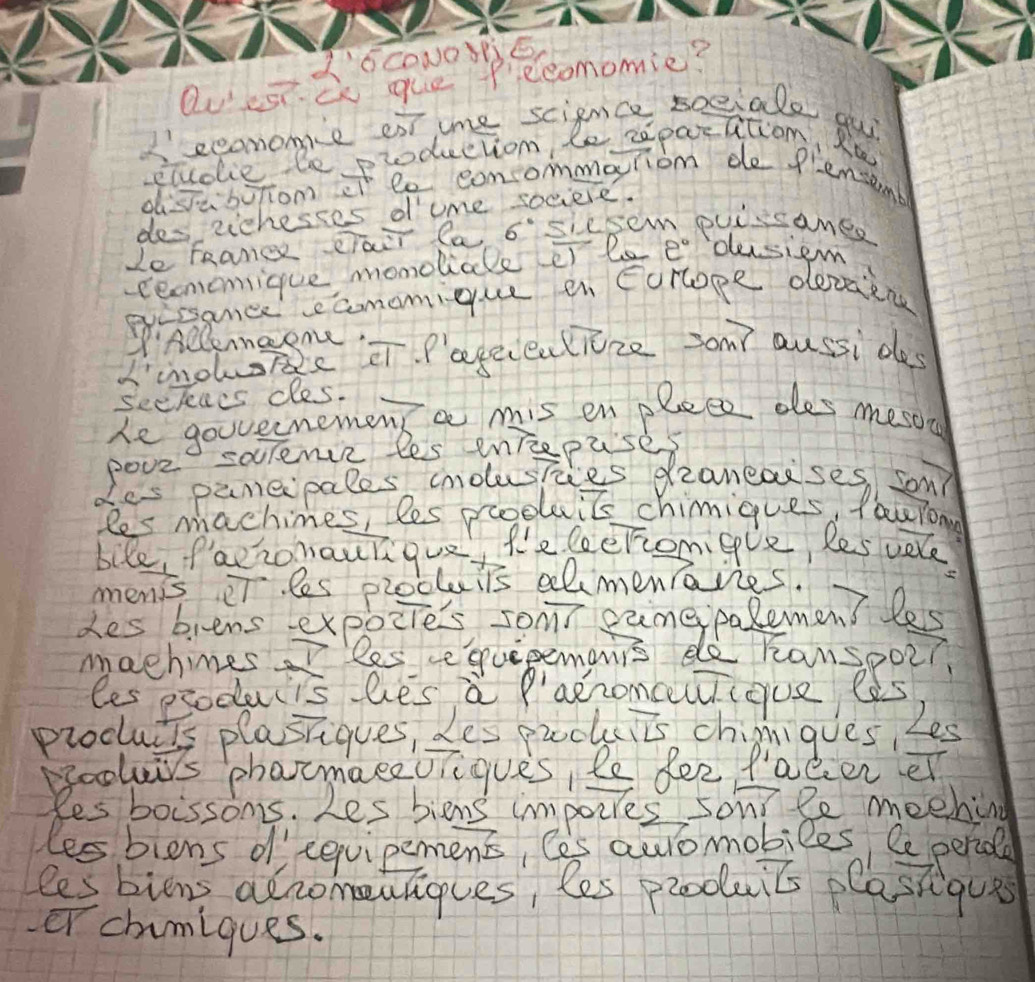 L'éCONOMIE
Qu'est-ce que l'économie?
L'economie est une science sociale qui
etudie la production, la réparatition, la
distribution et la consommation de l'ensemb
des richesses d'une societe.
La France etait la 6° sicsem puissance
economique mondiale et la e° deusiem
puissance economique en Europe derriène
l'Allemagne.
L'industrie et l'agriculture sont aussi des
secteurs cles.
Le gouvernement a mis en place des mesu
pour soutenir les entreprises
Les principales industries francaises sont
les machines, les produits chimiques, l'automo
bile, l'aéronautique, l'electronique, les vete
ments et les produits alimentaires.
Les biens exportés sont principalement les
machines et les equipements de transport,
les produits liés à l'aéronautique, les
produits plastiques, Les produits chimiques, Les
produits pharmaceutiques, le fer, l'acier et
les boissons. Les biens importes sont le machin
les biens d'equipements, les automobiles, le petrole
les biens aéronautiques, les produits plastiques
et chimiques.